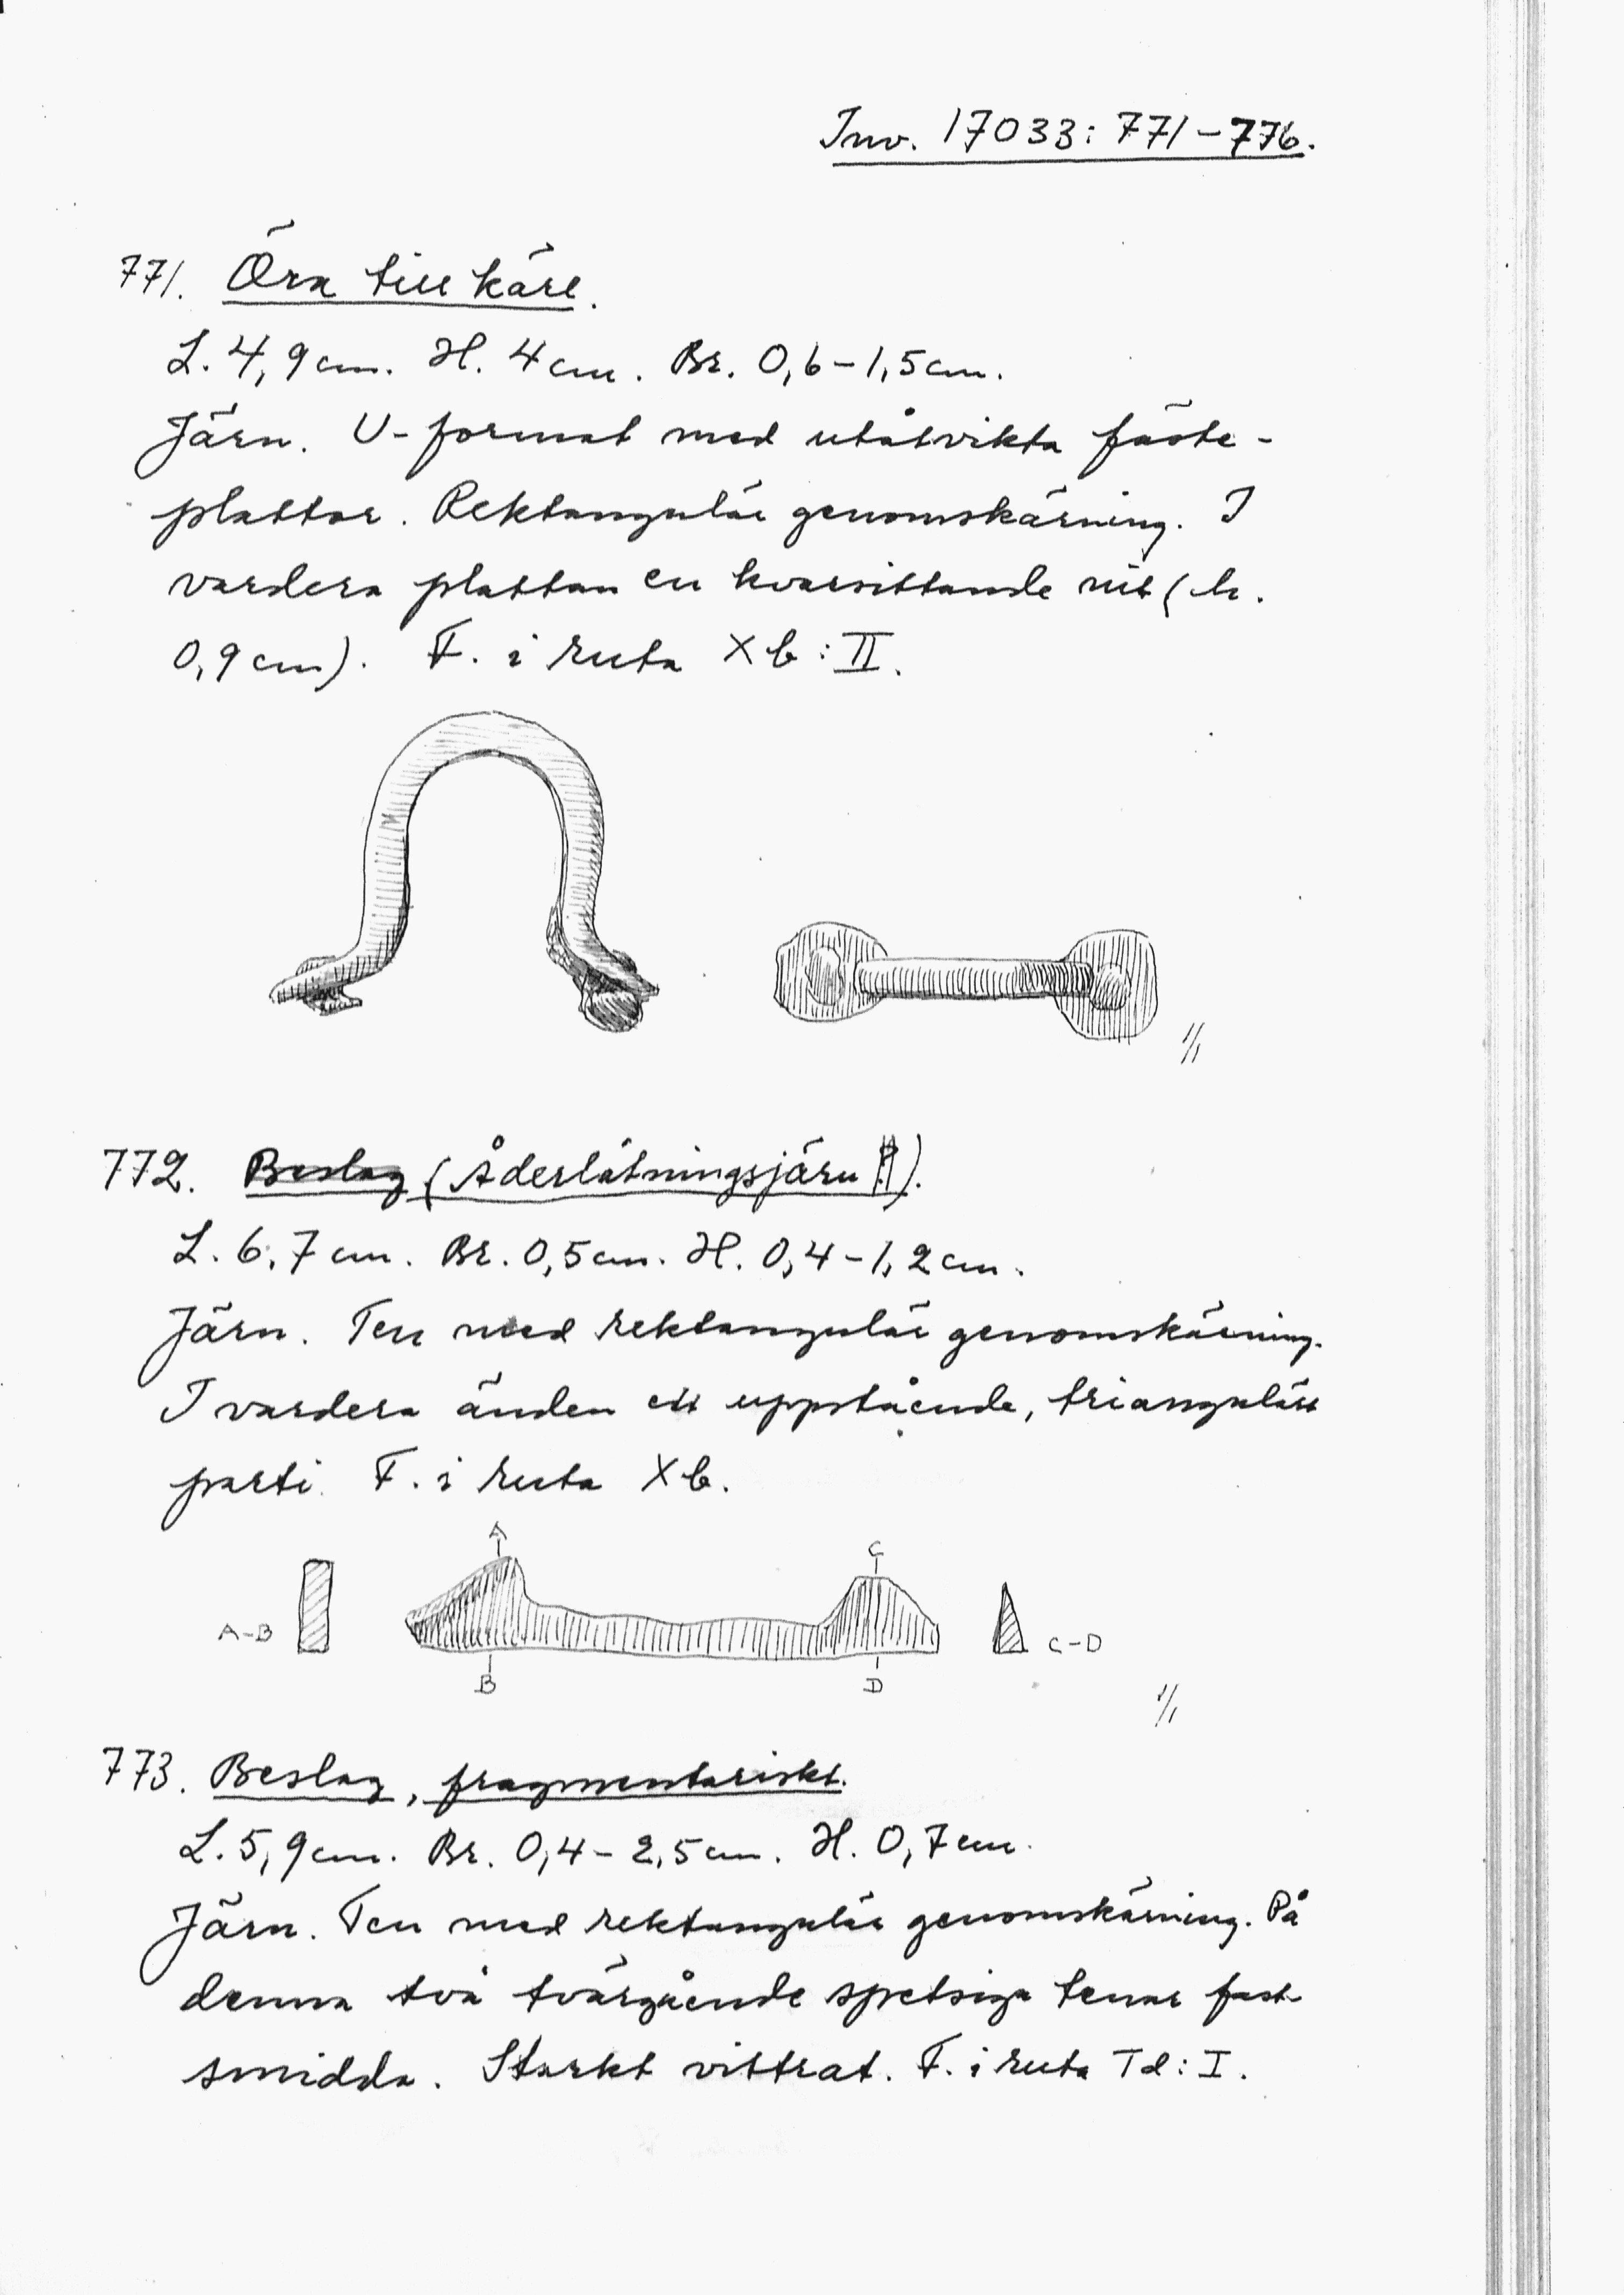 Inv. 17033: 771-776.
771. Öra till kärl.
L. 4,9 cm. H. 4 cm. Br. 0,6-1,5 cm.
Järn. U-format med utåtvikta fäste-
plattor. Rektangulär genomskärning. I
vardera plattan en kvarsittande nit (h.
0,9 cm). F. i ruta Xb:II.
1/1
772. Beslag (Åderlåtningsjärn ?).
L. 6,7 cm. Br. 0,5 cm. H. 0,4-1,2 cm.
Järn. Ten med rektangulär genomskärning.
I vardera änden ett uppstående, triangulärt
parti. F. i ruta Xb.
A C
A-B C-D
B D
1/1
773. Beslag, fragmentariskt.
L. 5,9 cm. Br. 0,4-2,5 cm. H. 0,7 cm.
Järn. Ten med rektangulär genomskärning. På
denna två tvärgående spetsiga tenar fast-
smidda. Starkt vittrat. F. i ruta Td:I.